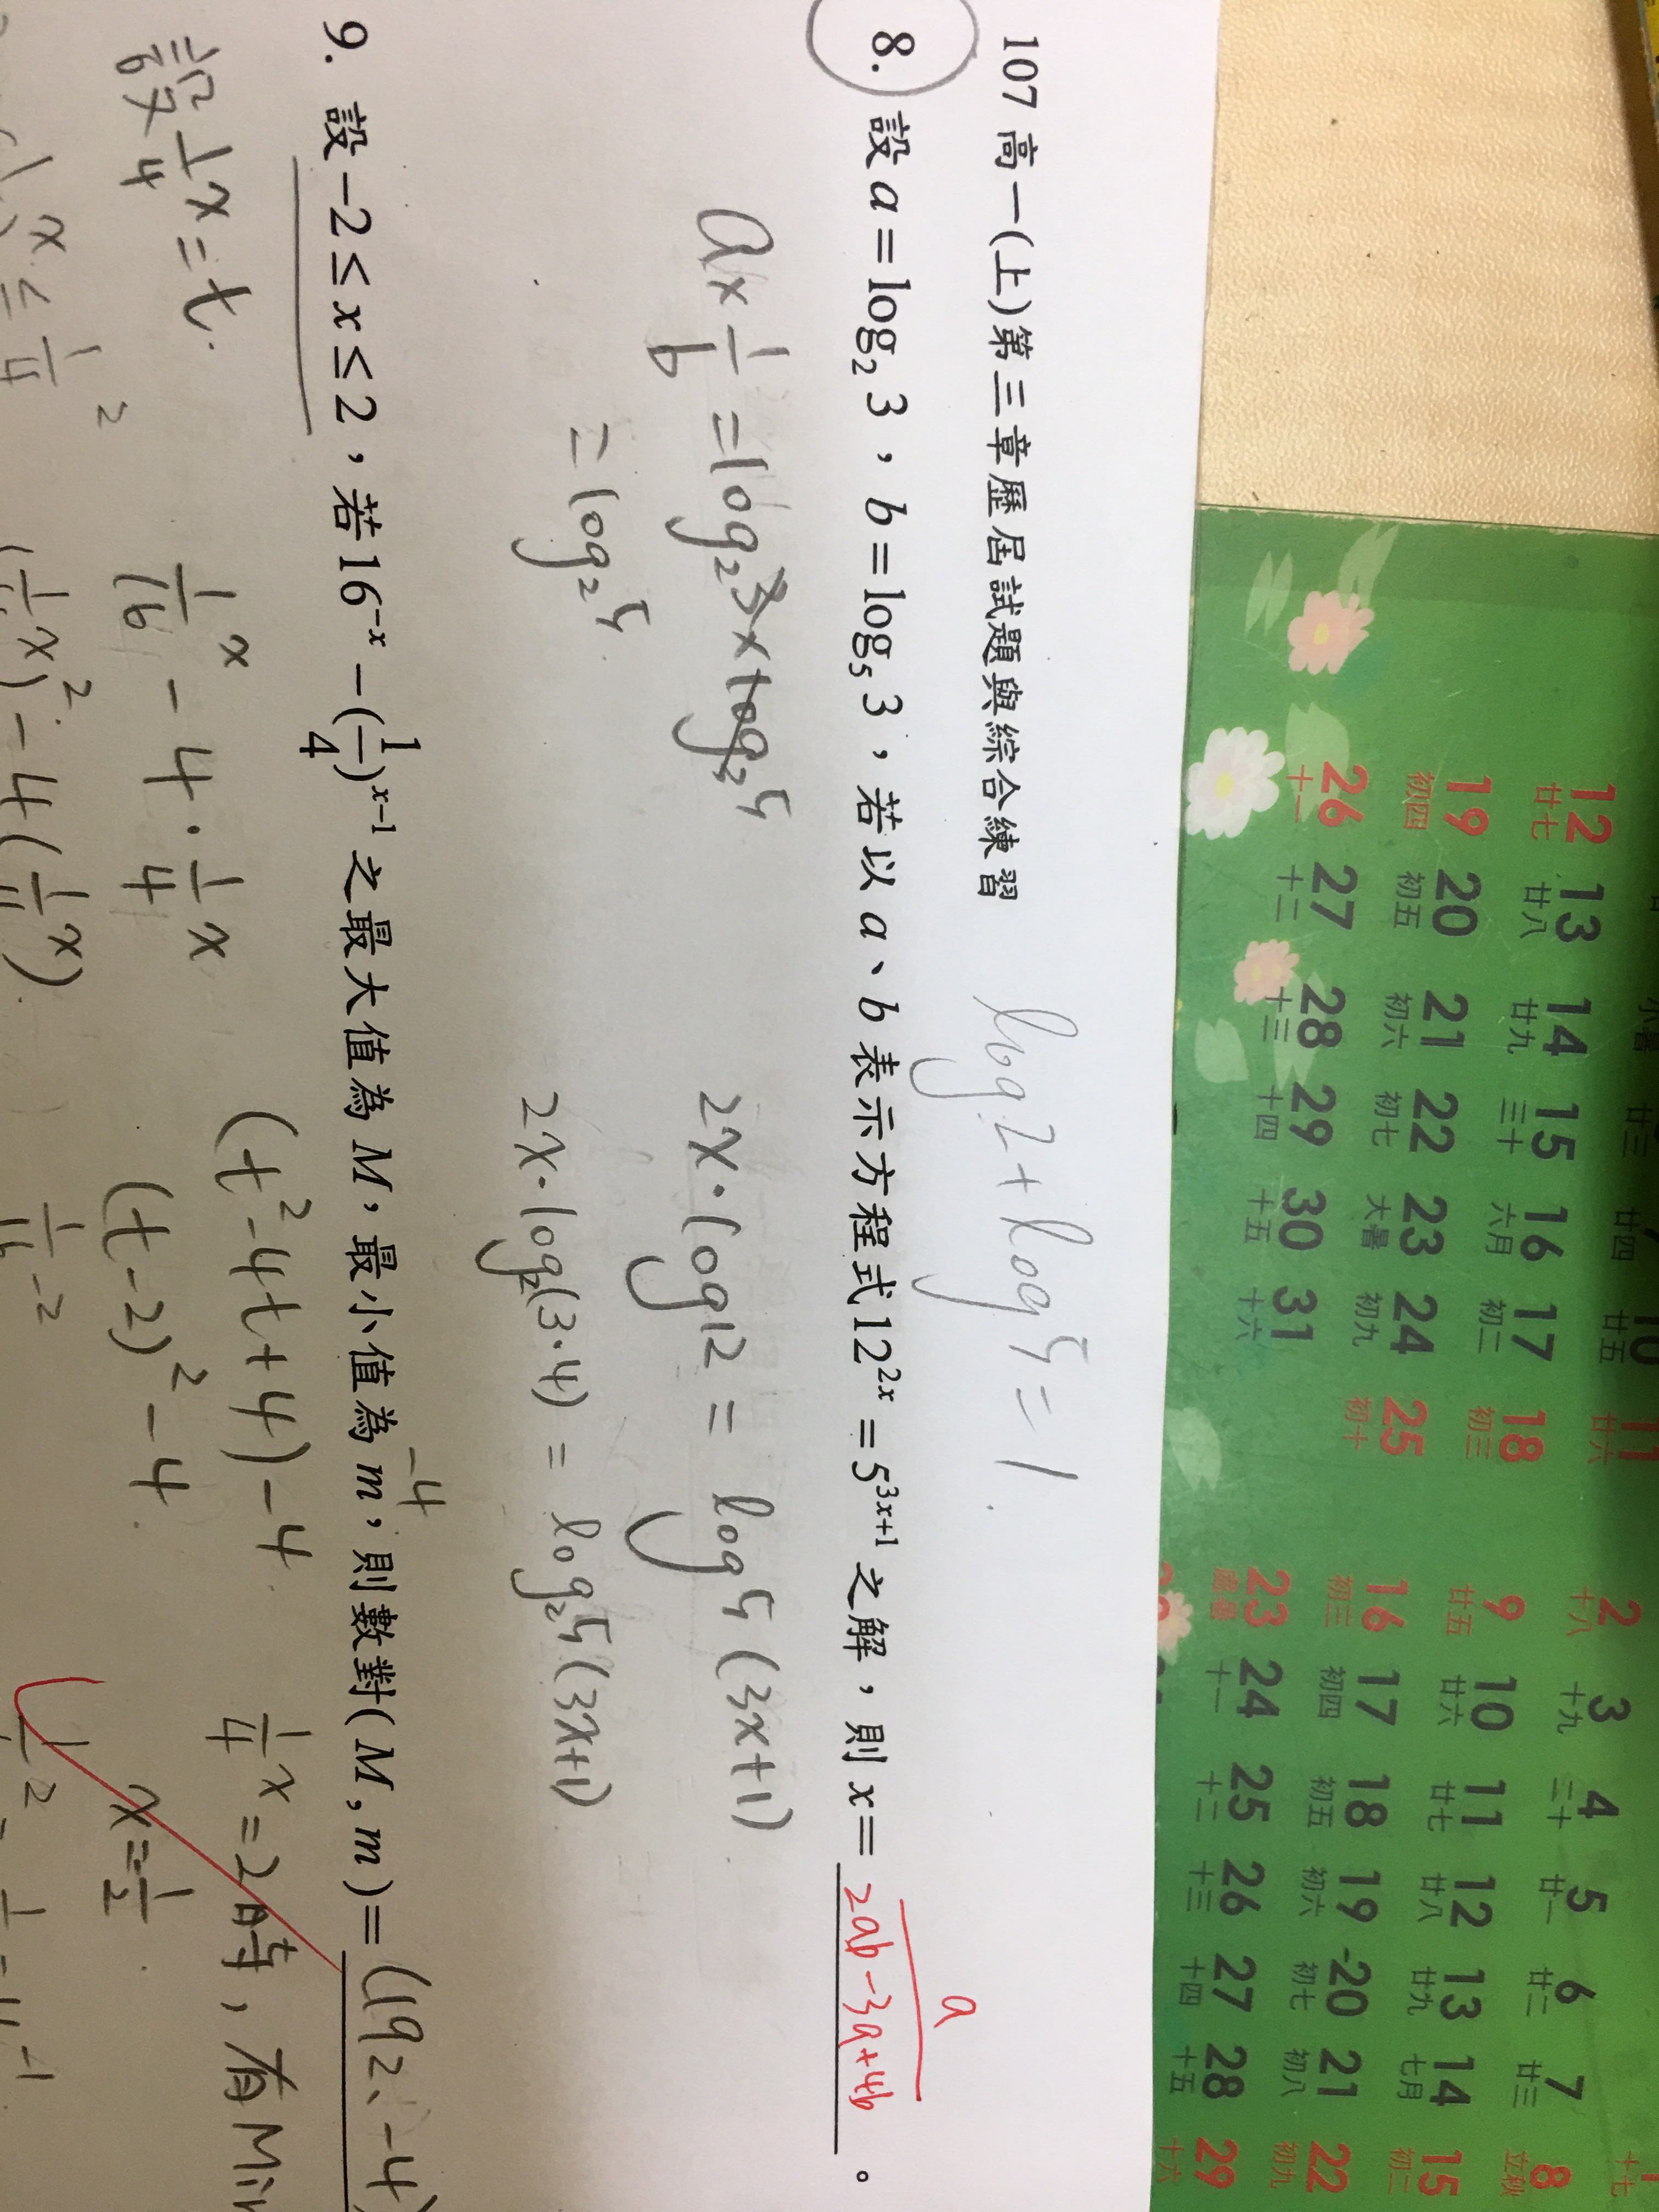 107 高一(上)第三章歷屆試題與綜合練習
log 2 + log 5 = 1
8. 設 a = log₂ 3，b = log₅ 3，若以 a、b 表示方程式 12^{2x} = 5^{3x+1} 之解，則 x = a / (2ab-3a+4b) 。
a × 1/b = log₂3 × log₃5
= log₂5
2x · log12 = log5 (3x+1)
2x · log₂(3·4) = log₂5 (3x+1)
9. 設 -2 ≤ x ≤ 2，若 16^{-x} - (1/4)^{x-1} 之最大值為 M，最小值為 m，則數對 (M, m) = (192、-4)
-4
設 1/4^x = t
1/16^x - 4 · 1/4^x
(t² - 4t + 4) - 4
(t - 2)² - 4
1/4^x = 2時，有Min
x = -1/2
12 13 14 15 16 17 18
廿七 廿八 廿九 三十 六月 初二 初三
19 20 21 22 23 24 25
初四 初五 初六 初七 大暑 初九 初十
26 27 28 29 30 31
十一 十二 十三 十四 十五 十六
2 3 4 5 6 7 8
十八 十九 二十 廿一 廿二 廿三 立秋
9 10 11 12 13 14 15
廿五 廿六 廿七 廿八 廿九 七月 初二
16 17 18 19 20 21 22
初三 初四 初五 初六 初七 初八 初九
23 24 25 26 27 28 29
處暑 十一 十二 十三 十四 十五 十六